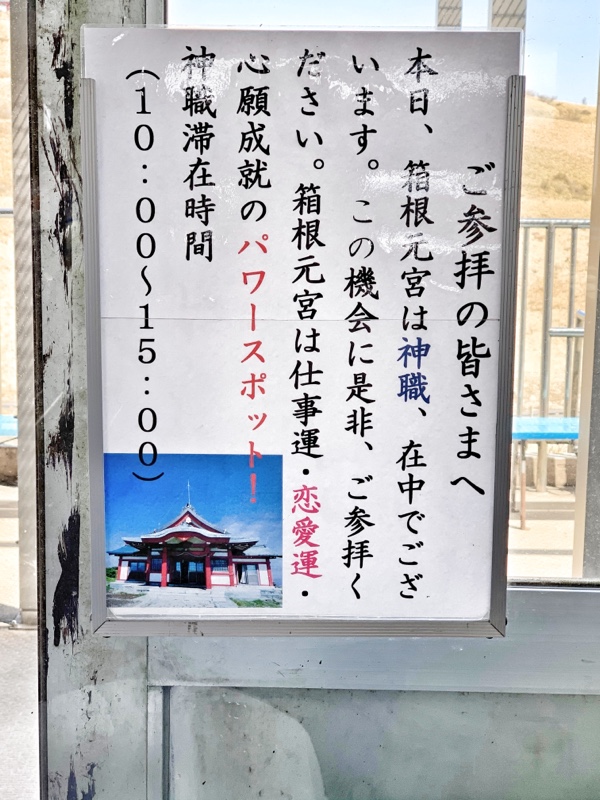 ご参拝の皆さまへ
本日、箱根元宮は神職、在中でござ
います。この機会に是非、ご参拝く
ださい。箱根元宮は仕事運・恋愛運・
心願成就のパワースポット！
神職滞在時間
（１０：００～１５：００）